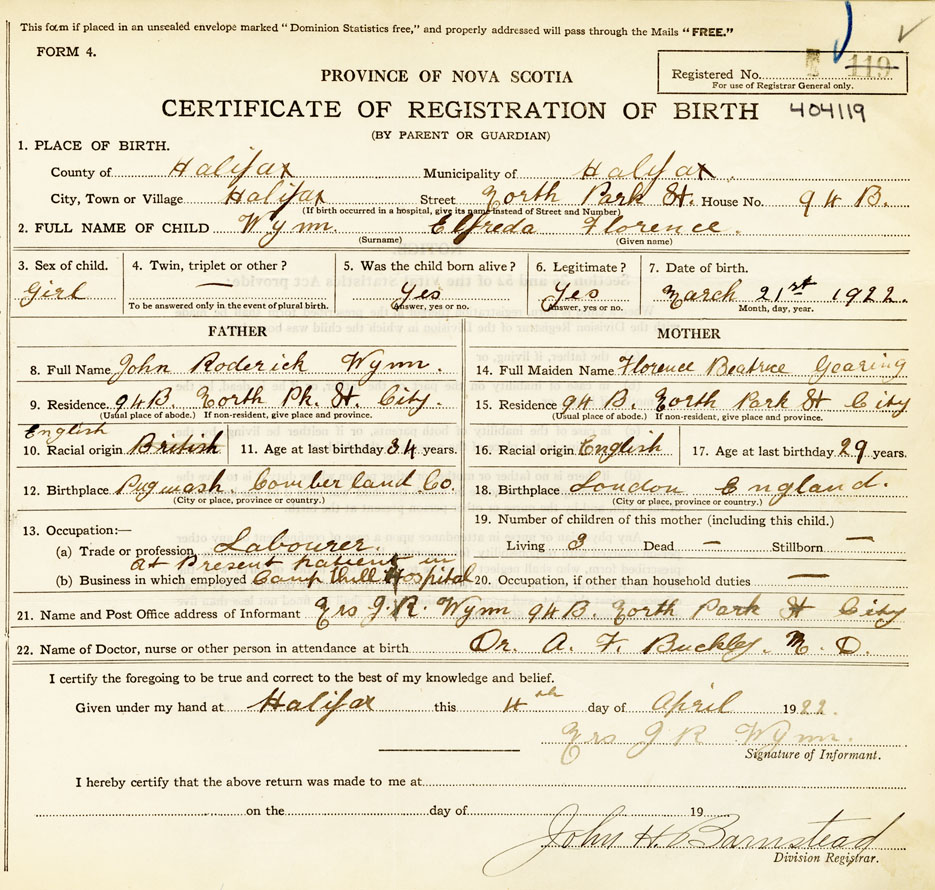 This form if placed in an unsealed envelope marked "Dominion Statistics free," and properly addressed will pass through the Mails "FREE."
FORM 4.
Registered No. 119
For use of Registrar General only.
PROVINCE OF NOVA SCOTIA
CERTIFICATE OF REGISTRATION OF BIRTH 404119
(BY PARENT OR GUARDIAN)
1. PLACE OF BIRTH.
County of Halifax Municipality of Halifax.
City, Town or Village Halifax Street North Park St. House No. 94 B.
(If birth occurred in a hospital, give its name instead of Street and Number)
2. FULL NAME OF CHILD Wynn. Elfreda Florence.
(Surname) (Given name)
3. Sex of child. Girl
4. Twin, triplet or other? —
To be answered only in the event of plural birth.
5. Was the child born alive? Yes
Answer, yes or no.
6. Legitimate? Yes
Answer, yes or no.
7. Date of birth. March 21st 1922.
Month, day, year.
FATHER
8. Full Name John Roderick Wynn.
9. Residence 94B. North Pk. St. City.
(Usual place of abode.) If non-resident, give place and province.
English
10. Racial origin British 11. Age at last birthday 34 years.
12. Birthplace Pugwash. Comberland Co.
(City or place, province or country.)
13. Occupation:—
(a) Trade or profession Labourer.
at Present patient in
(b) Business in which employed Camp Hill Hospital
MOTHER
14. Full Maiden Name Florence Beatrice Gearing
15. Residence 94 B. North Park St City
(Usual place of abode.) If non-resident, give place and province.
16. Racial origin English 17. Age at last birthday 29 years.
18. Birthplace London England.
(City or place, province or country.)
19. Number of children of this mother (including this child.)
Living 3 Dead — Stillborn —
20. Occupation, if other than household duties —
21. Name and Post Office address of Informant Mrs J.R. Wynn 94B. North Park St City
22. Name of Doctor, nurse or other person in attendance at birth Dr. A. F. Buckley. M. D.
I certify the foregoing to be true and correct to the best of my knowledge and belief.
Given under my hand at Halifax this 4th day of April 1922.
Mrs J R Wynn.
Signature of Informant.
I hereby certify that the above return was made to me at
on the day of 19
John H. Barnstead
Division Registrar.